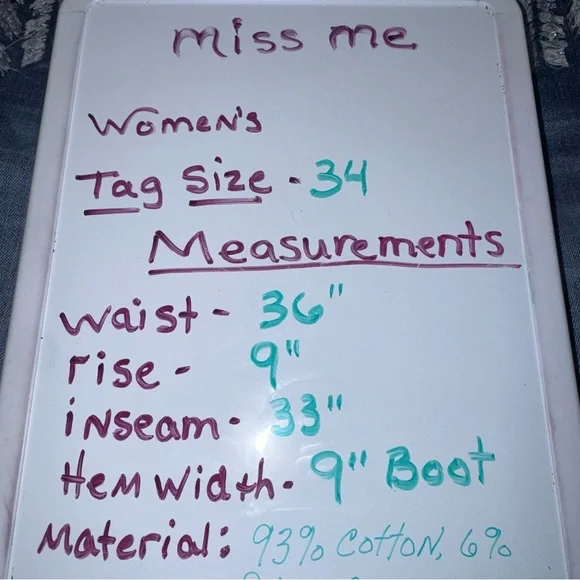 miss me
Women's
Tag Size - 34
Measurements
waist - 36"
rise - 9"
inseam - 33"
Hem Width - 9" Boot
Material: 93% Cotton, 6%